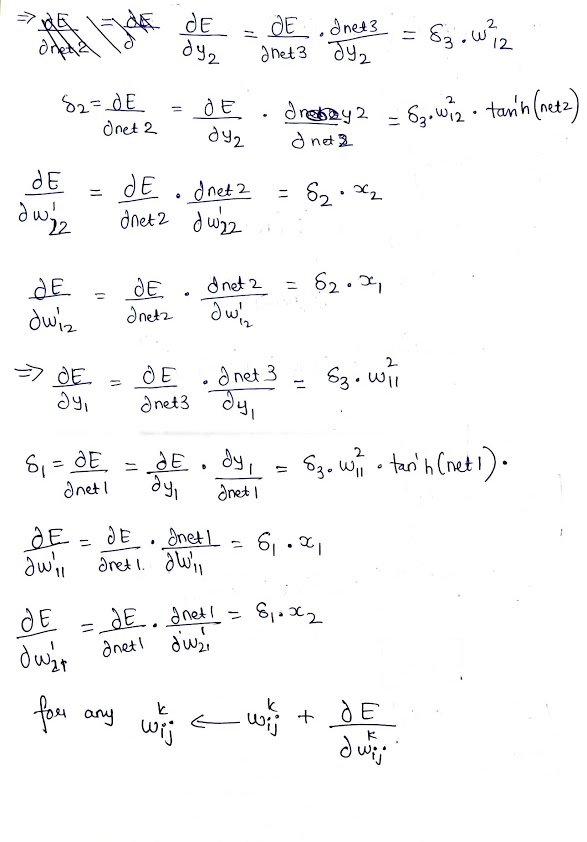 ⇒ ∂E/∂y₂ = ∂E/∂net3 · ∂net3/∂y₂ = δ₃ · w²₁₂
δ₂ = ∂E/∂net2 = ∂E/∂y₂ · ∂y2/∂net2 = δ₃ · w²₁₂ · tan'h(net2)
∂E/∂w'₂₂ = ∂E/∂net2 · ∂net2/∂w'₂₂ = δ₂ · x₂
∂E/∂w'₁₂ = ∂E/∂net2 · ∂net2/∂w'₁₂ = δ₂ · x₁
⇒ ∂E/∂y₁ = ∂E/∂net3 · ∂net3/∂y₁ = δ₃ · w²₁₁
δ₁ = ∂E/∂net1 = ∂E/∂y₁ · ∂y₁/∂net1 = δ₃ · w²₁₁ · tan'h(net1) ·
∂E/∂w'₁₁ = ∂E/∂net1 · ∂net1/∂w'₁₁ = δ₁ · x₁
∂E/∂w'₂₁ = ∂E/∂net1 · ∂net1/∂w'₂₁ = δ₁ · x₂
for any wᵏᵢⱼ ← wᵏᵢⱼ + ∂E/∂wᵏᵢⱼ